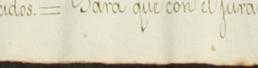 cidos.= Para que con el Jura